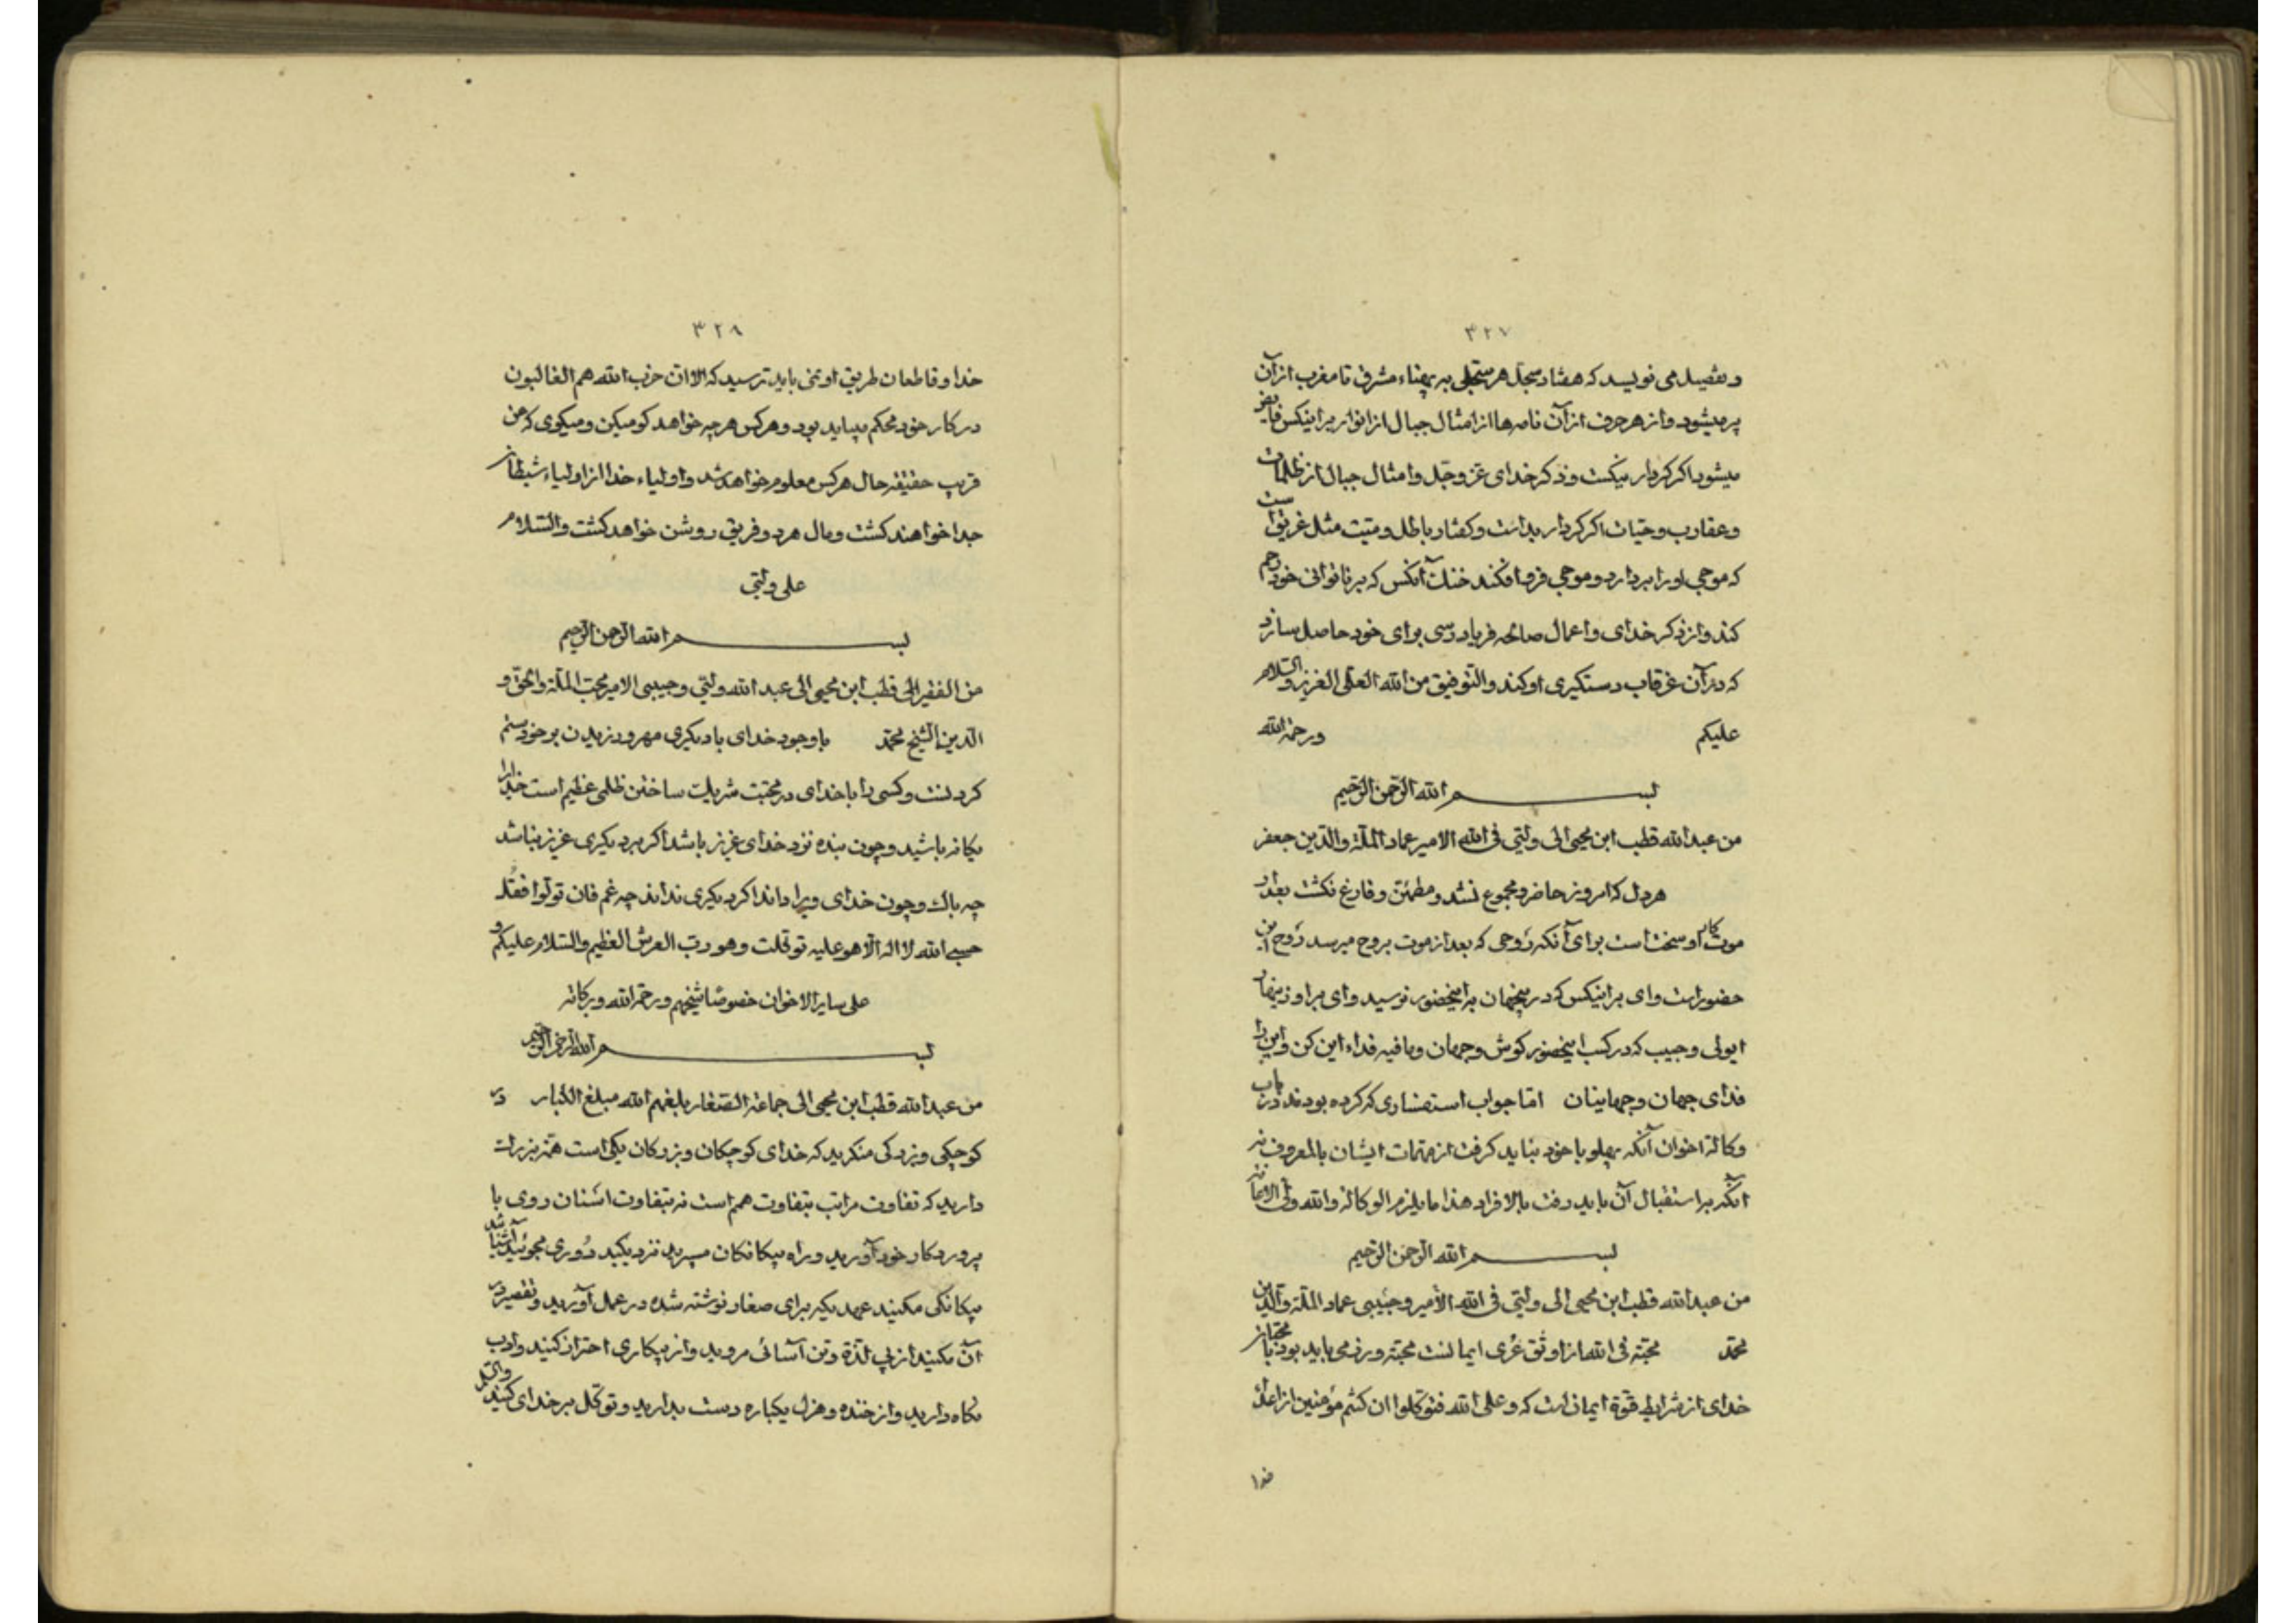 ۳۲۷
و تفصیل می نویسد که هفتاد سجل هر سجلی به پهناء مشرق تا مغرب از آن
پر میشود و از هر حرف از آن نامه‌ها از امثال جبال از انوار بر اینکس فایض
میشود اگر کردار نیکست و ذکر خدای عز و جل و امثال جبال از ظلمات
و عقارب و حیات اگر کردار بد است و گفتار باطل و میت مثل غریق است
که موجی او را بردارد و موجی فرو افکند خنک آنکس که بر ناتوانی خود رحم
کند و از ذکر خدای و اعمال صالحه فریادرسی برای خود حاصل سازد
که در آن غرقاب دستگیری او کند والتوفیق من الله العلی العزیز والسلام
علیکم ورحمة الله
بسم الله الرحمن الرحیم
من عبدالله قطب ابن محیی الی ولیی فی الله الامیر عماد الملة والدین جعفر
هر دل که امروز حاضر و مجموع نشد و مطمئن و فارغ نگشت بعد از
موت کار او سخت است برای آنکه رَوحی که بعد از موت بروح میرسد رَوح این
حضور است وای بر اینکس که در اینجهان به اینحضور نرسید وای بر او زینهار
ایولی و حبیب که در کسب اینحضور کوش و جهان و مافیه فداء این کن و این را
فدای جهان و جهانیان اما جواب استفساری که کرده بودند در باب
وکالة اخوان آنکه پهلو با خود نباید گرفت از مهمات ایشان بالمعروف نه
آنکه به استقبال آن باید رفت بالافراد هذا ما یلزم الوکالة والله ولی الاعانة
بسم الله الرحمن الرحیم
من عبدالله قطب ابن محیی الی ولیی فی الله الأمیر و حبیبی عماد الملة والدین
محمد محبة فی الله از اوثق عُری ایمانست محبة ورز می باید بود با محبان
خدای از شرایط قوة ایمان است که وعلی الله فتوکلوا ان کنتم مؤمنین از اعداء
خدا
۳۲۸
خدا و قاطعان طریق او نمی باید ترسید که الا ان حزب الله هم الغالبون
در کار خود محکم میباید بود و هر کس هر چه خواهد گو میکن و میگوی که عن
قریب حقیقه حال هر کس معلوم خواهد شد و اولیاء خدا از اولیاء شیطان
جدا خواهند گشت و مال هر دو فریق روشن خواهد گشت والسلام
علی ولیی
بسم الله الرحمن الرحیم
من الفقیر الی قطب ابن محیی الی عبد الله ولیی و حبیبی الامیر محب الملة والحق و
الدین الشیخ محمد با وجود خدای با دیگری مهر ورزیدن بر خود ستم
کردنست و کسی را با خدای در محبت شریک ساختن ظلمی عظیم است خدا را
یکانه باشید و چون بنده نزد خدای عزیز باشد اگر بر دیگری عزیز نباشد
چه باک و چون خدای ویرا داند اگر دیگری نداند چه غم فان تولوا فقل
حسبی الله لا اله الا هو علیه توکلت وهو رب العرش العظیم والسلام علیکم و
علی سایر الاخوان خصوصا شیخهم ورحمة الله وبرکاته
بسم الله الرحمن الرحیم
من عبدالله قطب ابن محیی الی جماعة الصغار بلغهم الله مبلغ الکبار در
کوچکی و بزرگی منگرید که خدای کوچکان و بزرگان یکی است همة بزرگ
دارید که تفاوت مراتب بتفاوت همم است نه بتفاوت اسنان روی با
پروردگار خود آورید و راه بیگانگان مسپرید نزدیکید دُوری مجوئید آشنا شد
بیگانگی مکنید عهدیکه برای صغار نوشته شده در عمل آورید و تقصیر در
آن مکنید از پی لذة و تن آسائی مروید و از بیکاری احتراز کنید و ادب
نگاه دارید و از خنده و هزل یکباره دست بدارید و توکل بر خدای کنید والسلام